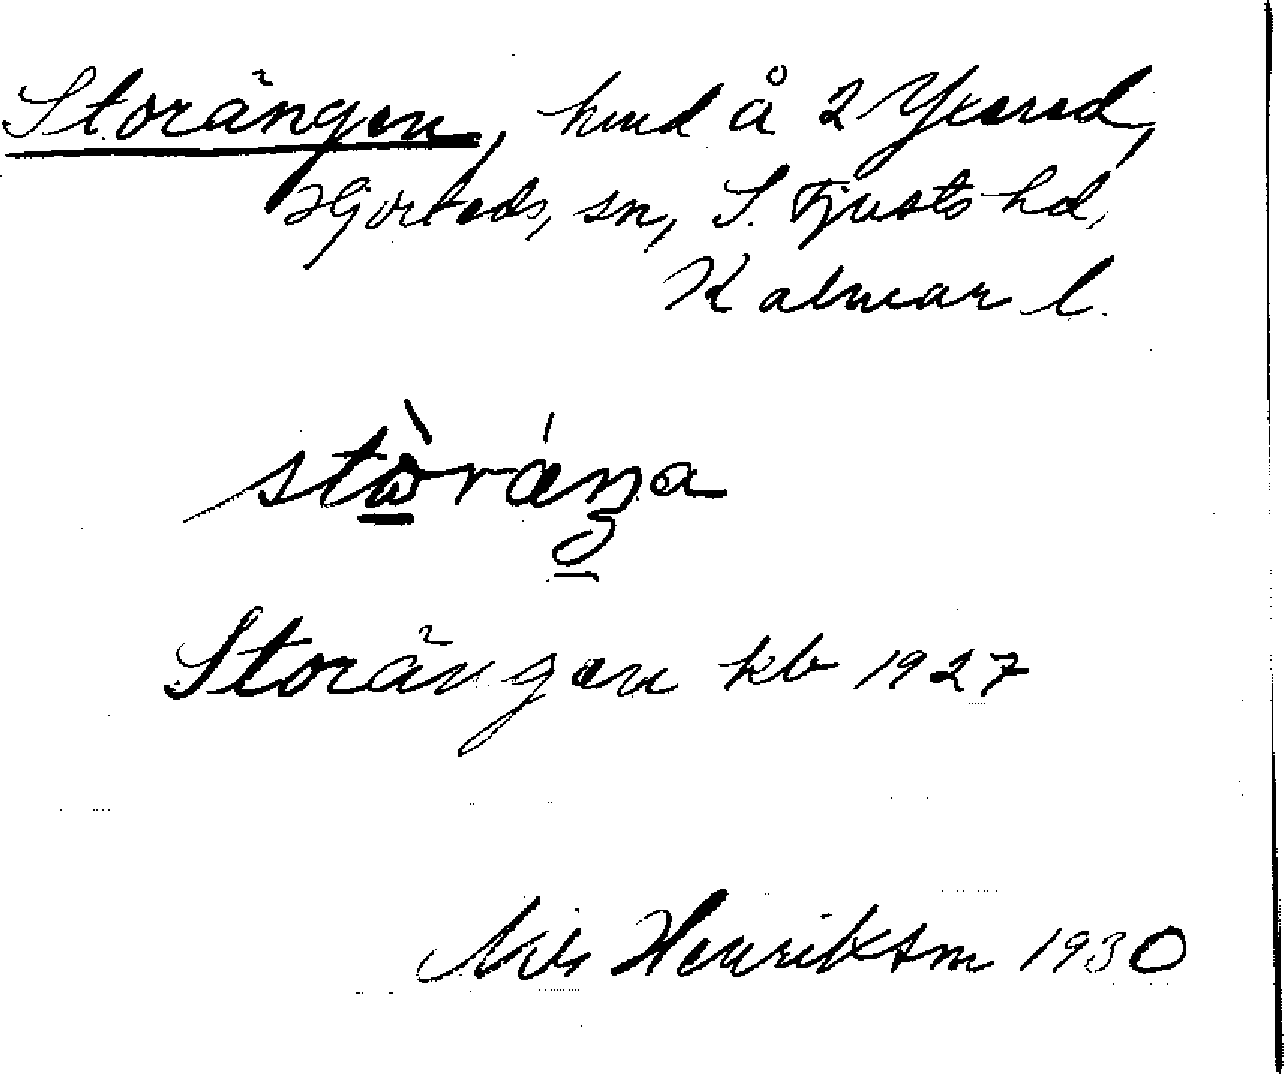 Storängen, hmd å 2 Yxered,
Hjorteds, sn, S. Tjusts hd,
Kalmar l.
stòráŋa
Storängen kb 1927
Nils Henrikson 1930